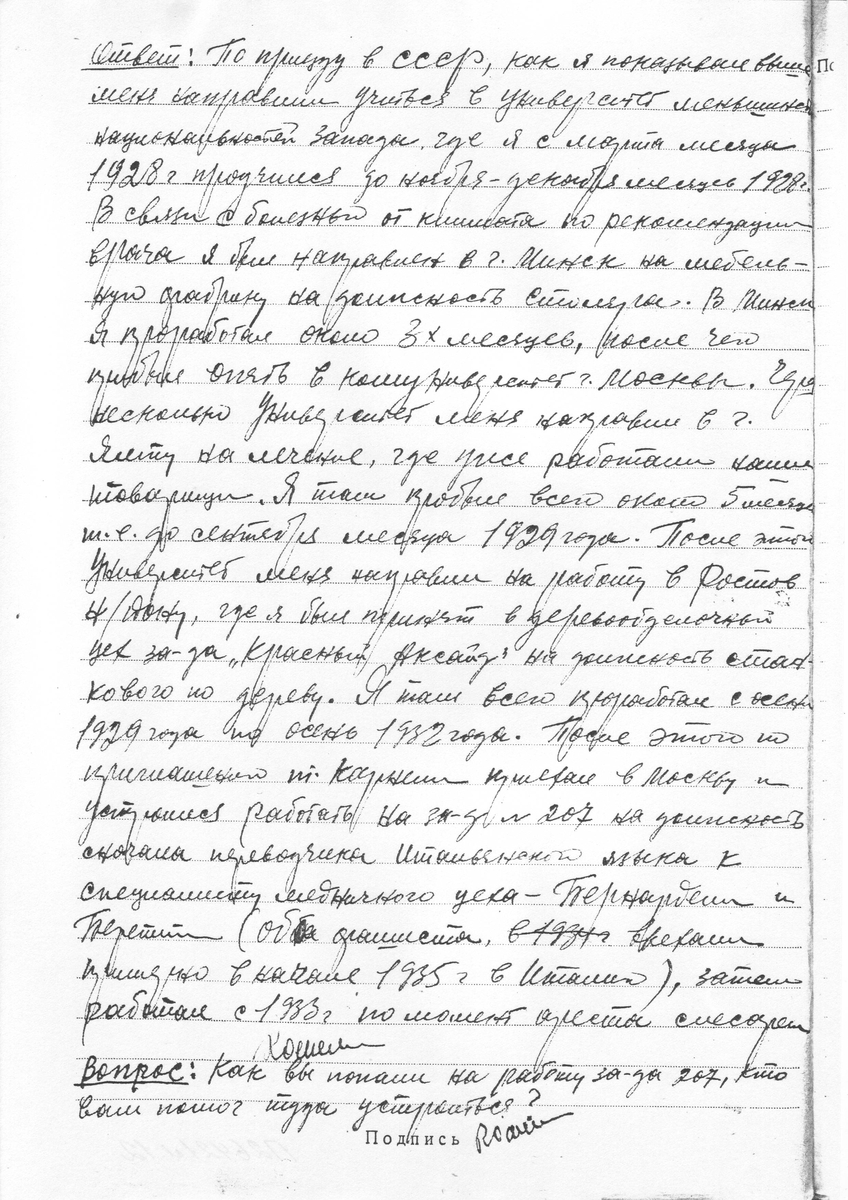 Ответ: По приезду в СССР, как я показывал выше
меня направили учиться в университет меньшинств
национальностей Запада, где я с марта месяца
1928 г проучился до ноября-декабря месяцев 1928г.
В связи с болезнью от климата по рекомендации
врача я был направлен в г. Минск на мебель-
ную фабрику на должность столяра. В Минске
я проработал около 3х месяцев, после чего
прибыл опять в комуниверситет г. Москвы. Через
несколько Университет меня направил в г.
Ялту на лечение, где уже работали наши
товарищи. Я там пробыл всего около 5 месяцев
т.е. до сентября месяца 1929 года. После этого
Университет меня направил на работу в Ростов
Н/Дону, где я был принят в деревообделочный
цех за-да „Красный Аксай" на должность стан-
кового по дереву. Я там всего проработал с осени
1929 года по осень 1932 года. После этого по
приглашению т. приехал в Москву и
устроился работать на за-д N 207 на должность
сначала переводчика Итальянского языка к
специалисту медничного цеха – Бернардели и
(оба фашиста, в 1934 г уехали
примерно в начале 1935 г в Италию), затем
работал с 1933 г по момент ареста слесарем
Вопрос: Как вы попали на работу за-да 207, кто
вам помог туда устроиться?
Подпись
По